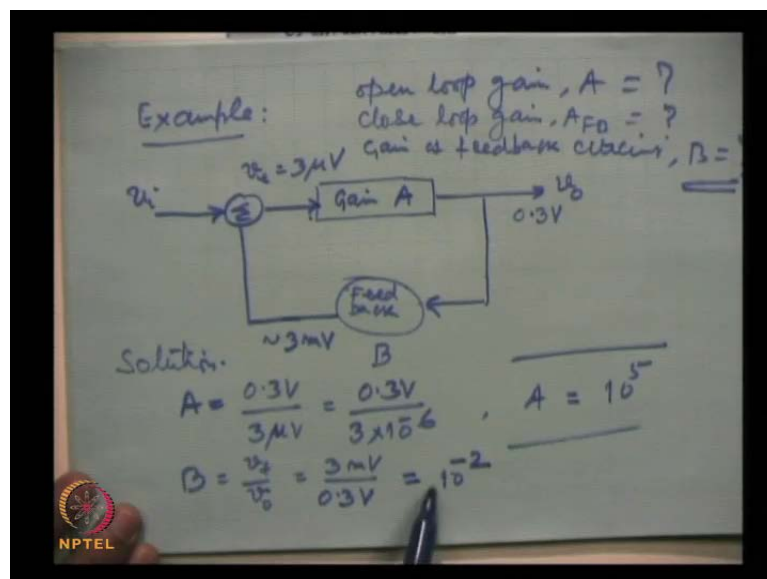 open loop gain, A = ?
Example:
close loop gain, A_FD = ?
Gain of feedback circuit, B = ?
v_i
= 3μV
Σ
Gain A
v_o
0.3V
Feed
back
~3mV
B
Solution.
A = 0.3V / 3μV = 0.3V / 3×10^-6 , A = 10^5
B = v_f / v_o = 3mV / 0.3V = 10^-2
NPTEL